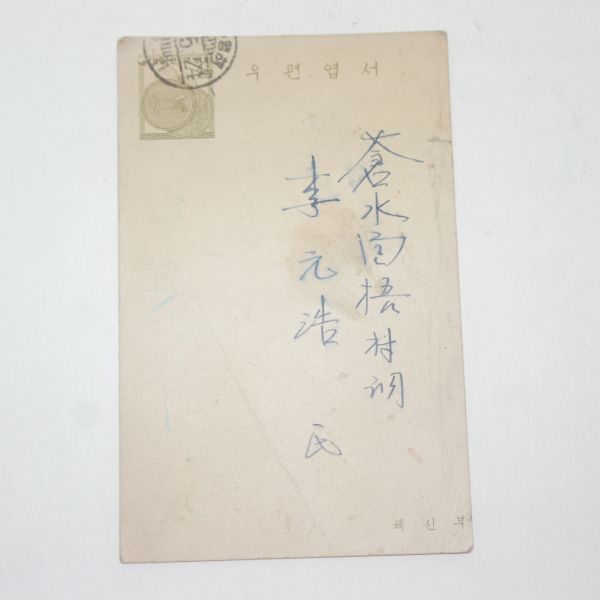 우편엽서
蒼水面梧村洞
李元浩 氏
체신부